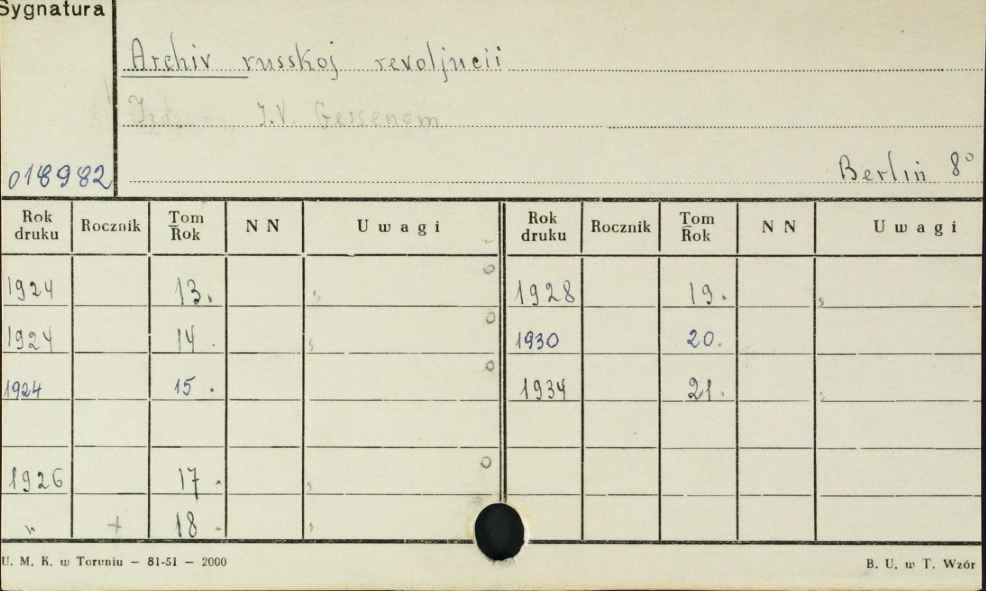 Sygnatura
Archiv russkoj revoljucii
I.V. Gessenom
018982 Berlin 8°
Rok druku Rocznik Tom Rok N N Uwagi Rok druku Rocznik Tom Rok N N Uwagi
1924 13. 1928 19.
1924 14. 1930 20.
1924 15. 1934 21.
1926 17.
„ + 18.
U. M. K. w Toruniu — 81-51 — 2000 B. U. w T. Wzór